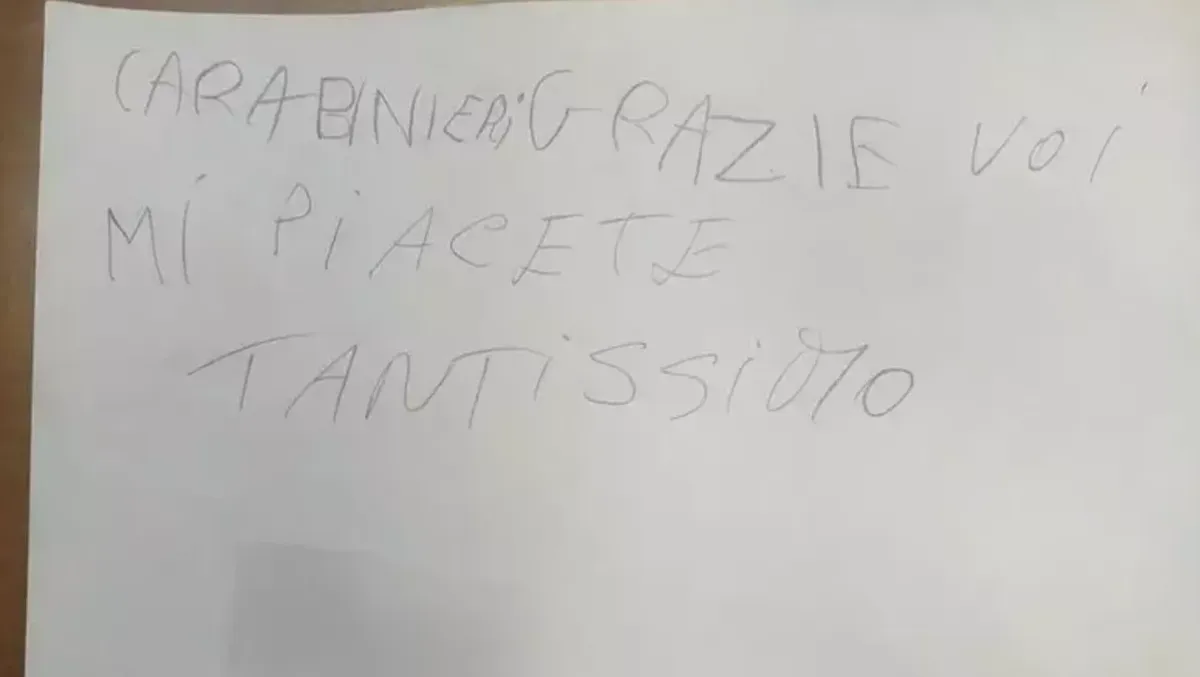 CARABINIERI GRAZIE VOI
MI PIACETE
TANTISSIMO